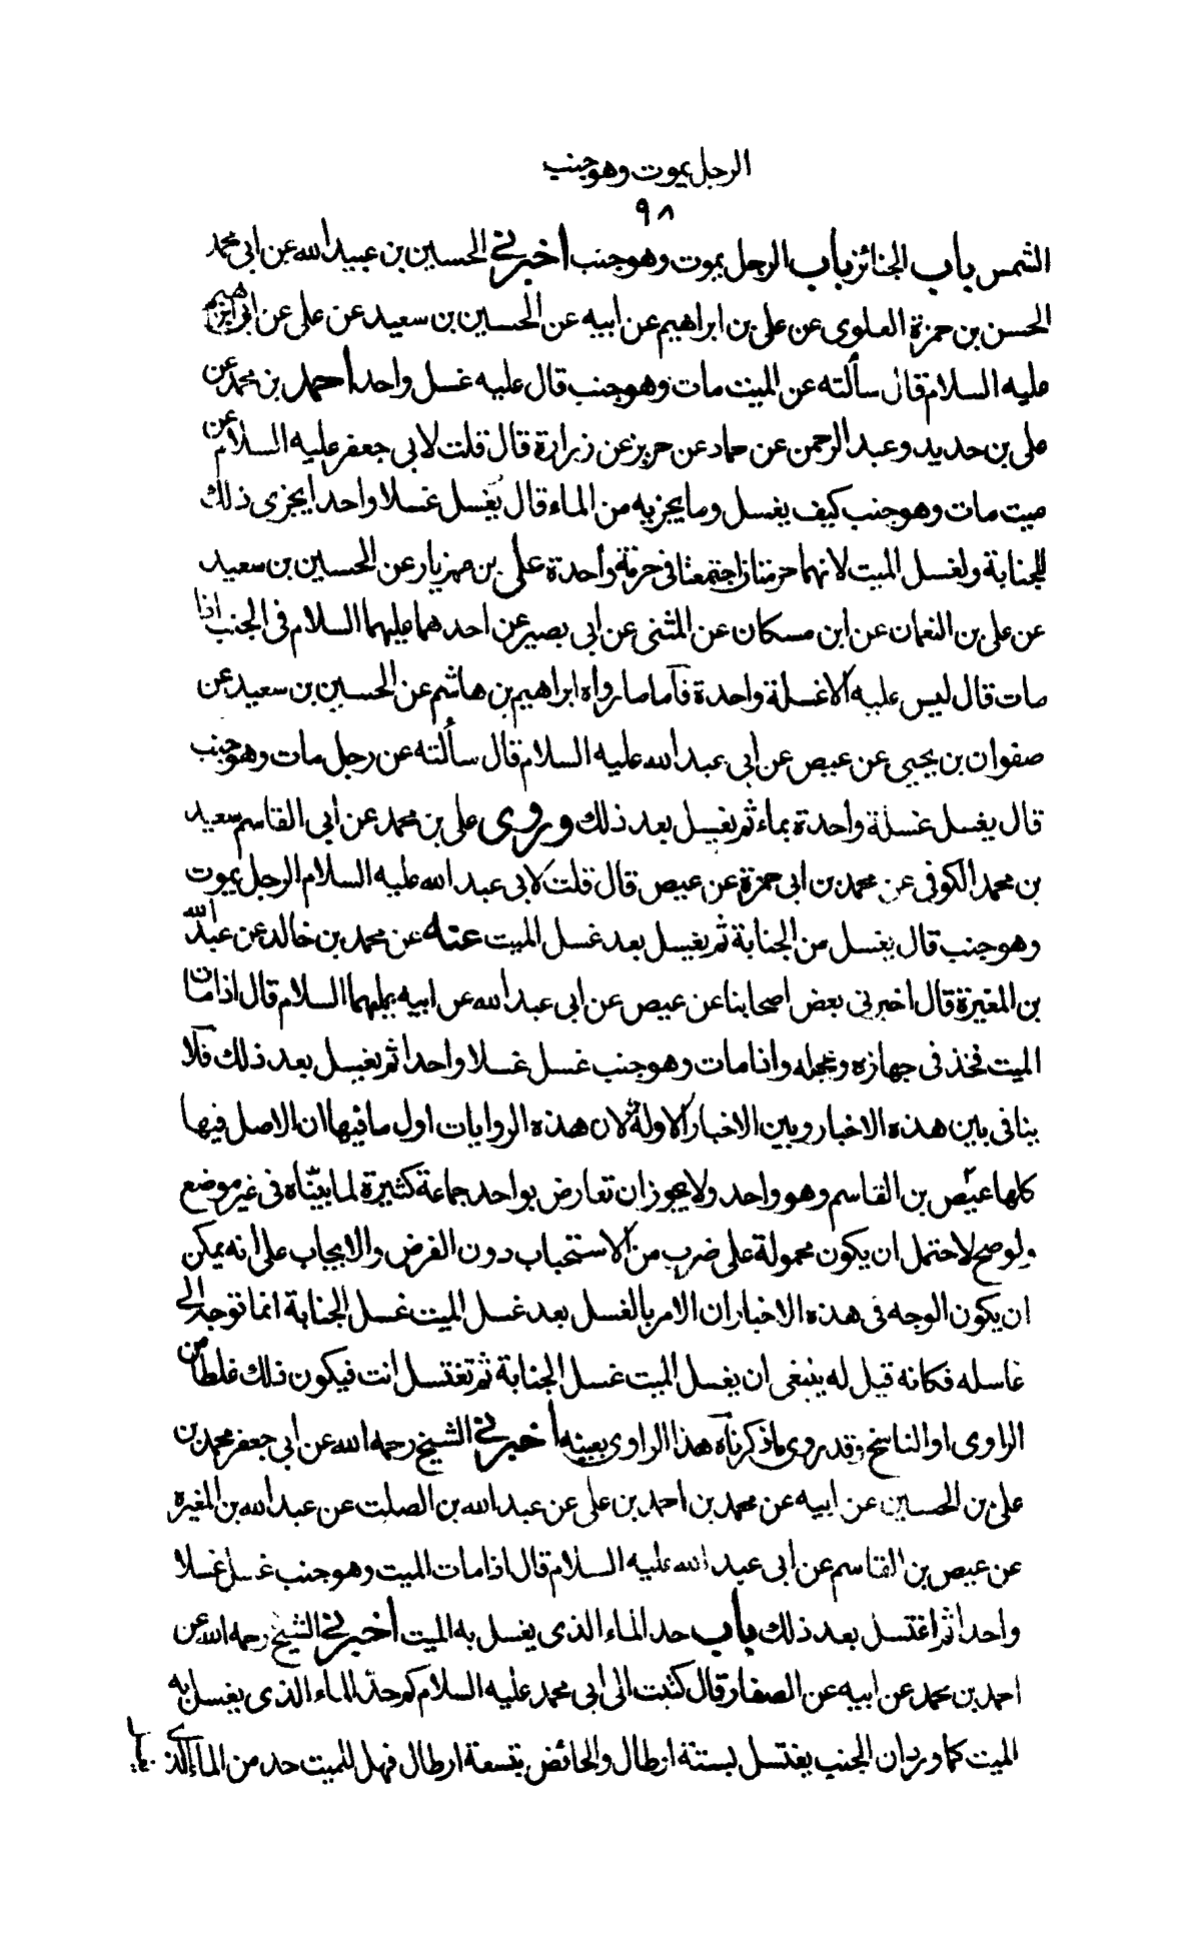 الرجل يموت وهو جنب
٩٨
الشمس باب الجنائز باب الرجل يموت وهو جنب اخبرني الحسين بن عبيد الله عن ابى محمد
الحسن بن حمزة العلوى عن على بن ابراهيم عن ابيه عن الحسين بن سعيد عن على عن ابى ابراهيم
عليه السلام قال سألته عن الميت مات وهو جنب قال عليه غسل واحد احمد بن محمد عن
على بن حديد وعبد الرحمن عن حماد عن حريز عن زرارة قال قلت لابى جعفر عليه السلام عن
ميت مات وهو جنب كيف يغسل وما يجزيه من الماء قال يغسل غسلا واحدا يجزى ذلك
للجنابة ولغسل الميت لانهما حرمتان اجتمعتا فى حرمة واحدة على بن مهزيار عن الحسين بن سعيد
عن على بن النعمان عن ابن مسكان عن المثنى عن ابى بصير عن احدهما عليهما السلام فى الجنب اذا
مات قال ليس عليه الا غسلة واحدة فأما ما رواه ابراهيم بن هاشم عن الحسين بن سعيد عن
صفوان بن يحيى عن عيص عن ابى عبد الله عليه السلام قال سألته عن رجل مات وهو جنب
قال يغسل غسلة واحدة بماء ثم يغسل بعد ذلك وروى على بن محمد عن ابى القاسم سعيد
بن محمد الكوفى عن محمد بن ابى حمزة عن عيص قال قلت لابى عبد الله عليه السلام الرجل يموت
وهو جنب قال يغسل من الجنابة ثم يغسل بعد غسل الميت عنه عن محمد بن خالد عن عبد الله
بن المغيرة قال اخبرنى بعض اصحابنا عن عيص عن ابى عبد الله عن ابيه عليهما السلام قال اذا مات
الميت فخذ فى جهازه وعجله واذا مات وهو جنب غسل غسلا واحدا ثم يغسل بعد ذلك فلا
ينافى بين هذه الاخبار وبين الاخبار الاولة لان هذه الروايات اول ما فيها ان الاصل فيها
كلها عيص بن القاسم وهو واحد ولا يجوز ان تعارض بواحد جماعة كثيرة لما بيناه فى غير موضع
ولو صح لاحتمل ان يكون محمولة على ضرب من الاستحباب دون الفرض والايجاب على انه يمكن
ان يكون الوجه فى هذه الاخبار ان الامر بالغسل بعد غسل الميت غسل الجنابة انما توجه الى
غاسله فكانه قيل له ينبغى ان يغسل الميت غسل الجنابة ثم تغتسل انت فيكون ذلك غلطا من
الراوى او الناسخ وقد روى ما ذكرناه هذا الراوى بعينه اخبرني الشيخ رحمه الله عن ابى جعفر محمد بن
على بن الحسين عن ابيه عن محمد بن احمد بن على عن عبد الله بن الصلت عن عبد الله بن المغيرة
عن عيص بن القاسم عن ابى عبد الله عليه السلام قال اذا مات الميت وهو جنب غسل غسلا
واحدا ثم اغتسل بعد ذلك باب حد الماء الذى يغسل به الميت اخبرني الشيخ رحمه الله عن
احمد بن محمد عن ابيه عن الصفار قال كتبت الى ابى محمد عليه السلام كم حد الماء الذى يغسل به
الميت كما ورد ان الجنب يغتسل بستة ارطال والحائض بتسعة ارطال فهل للميت حد من الماء الذى